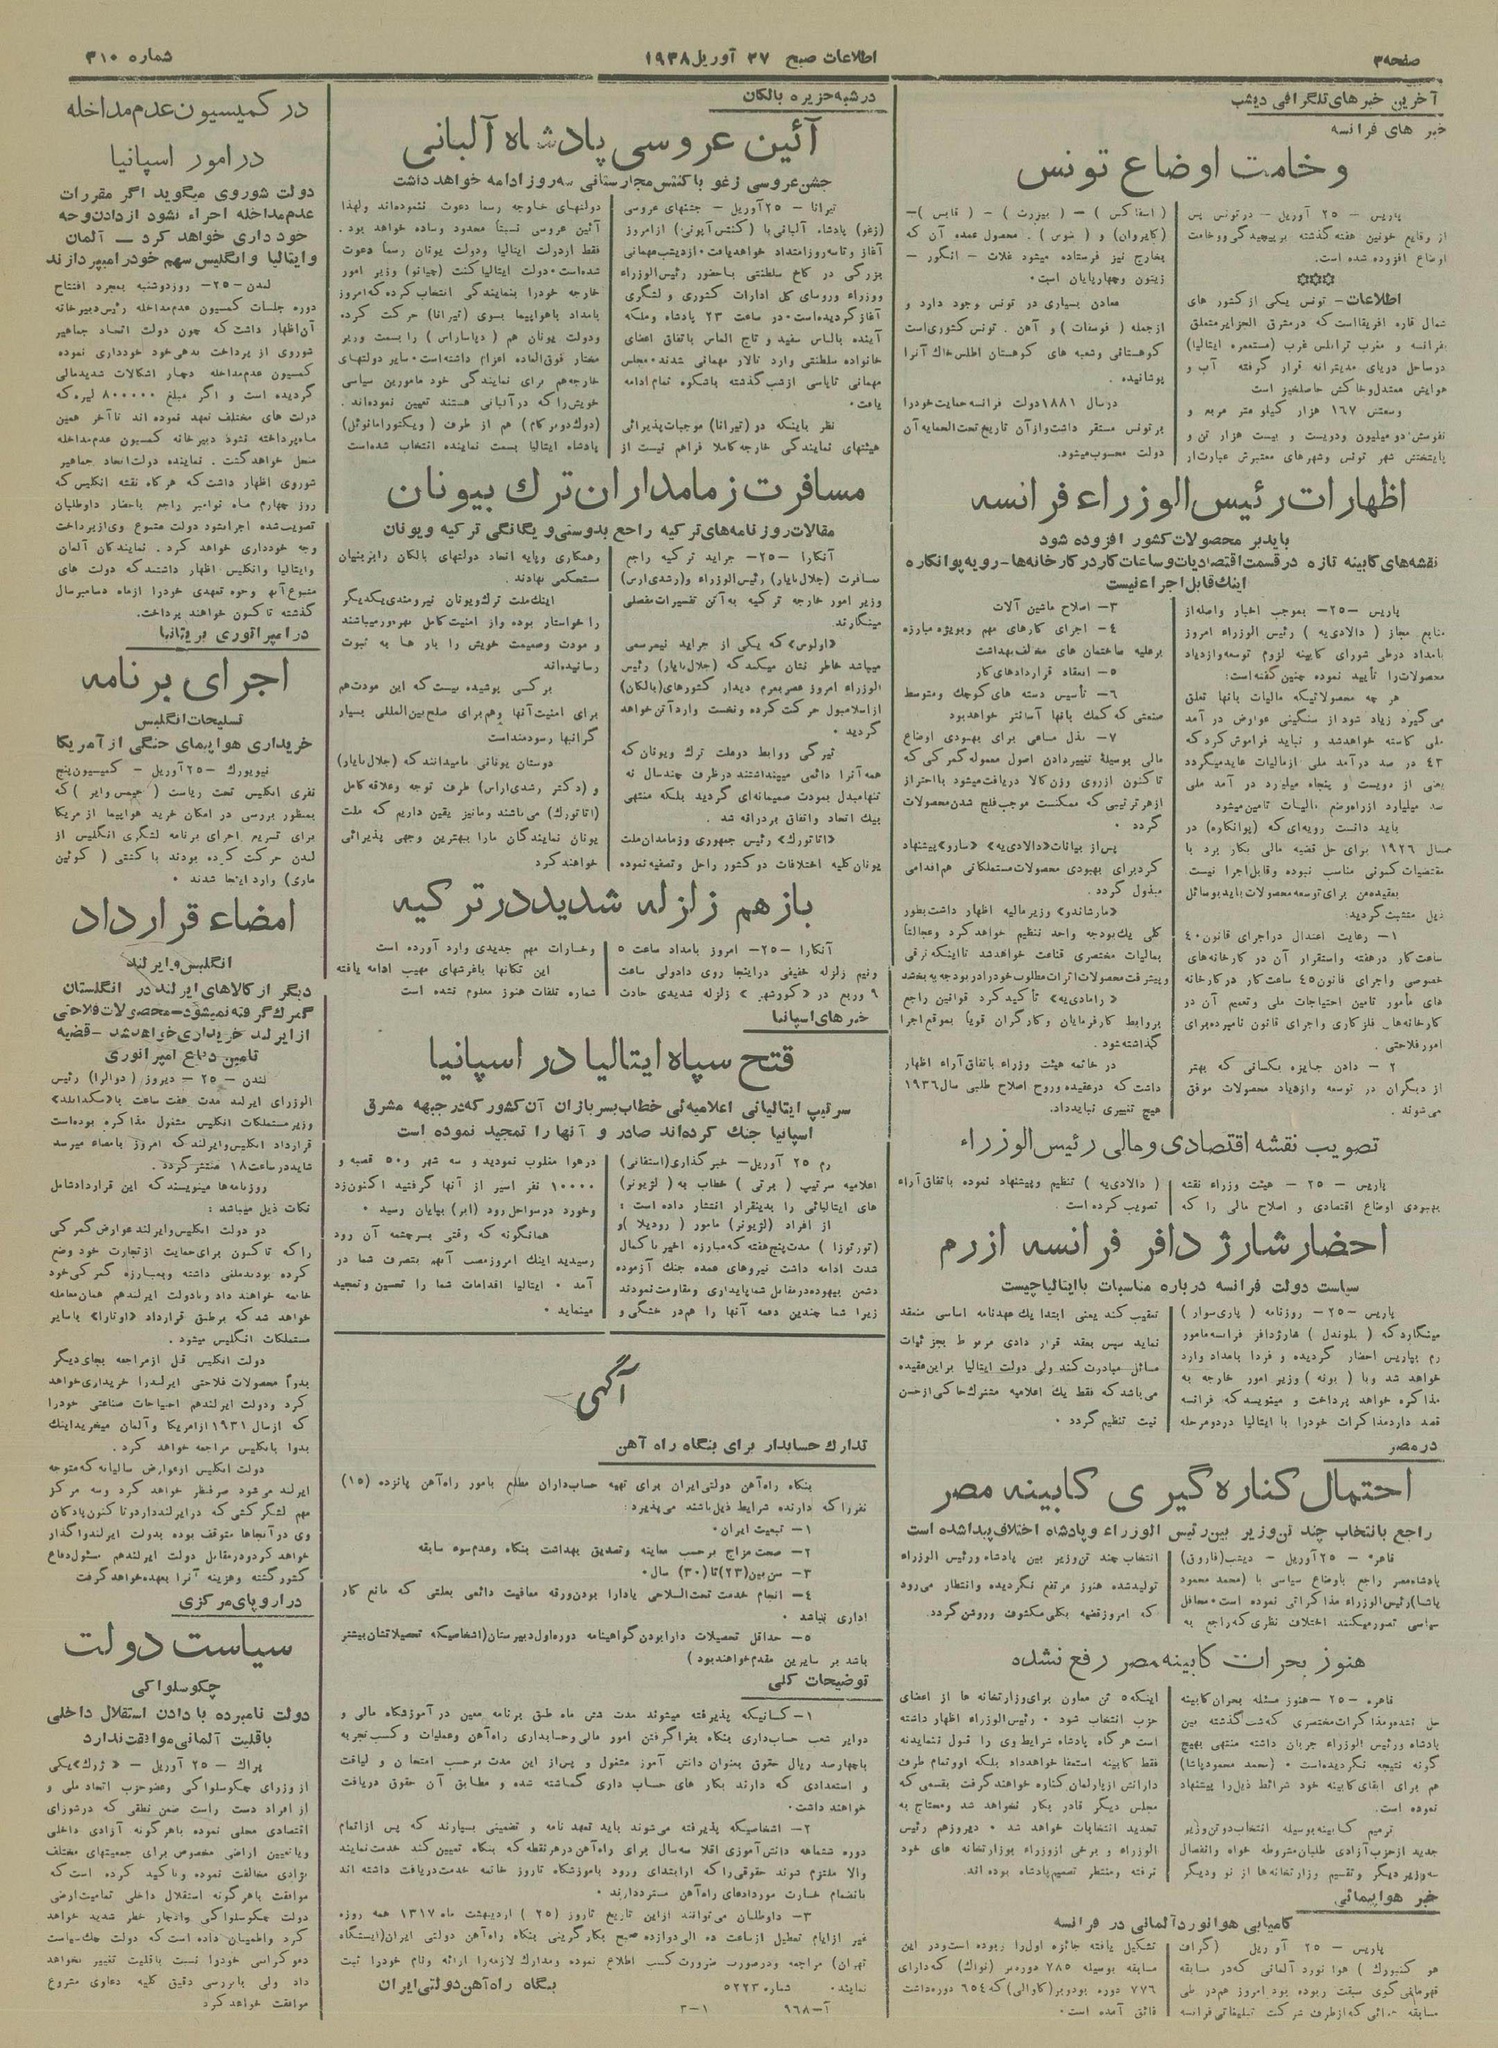 صفحه۳
اطلاعات صبح ۲۷ آوریل ۱۹۳۸
شماره ۳۱۰
آخرین خبرهای تلگرافی دیشب
خبر های فرانسه
وخامت اوضاع تونس
پاریس -۲۵ آوریل- در تونس پس
از وقایع خونین هفته گذشته بر پیچیدگی و وخامت
اوضاع افزوده شده است.
اطلاعات- تونس یکی از کشور های
شمال قاره افریقا است که در مشرق الجزایر متعلق
بفرانسه و مغرب ترابلس غرب (مستعمره ایتالیا)
در ساحل دریای مدیترانه قرار گرفته آب و
هوایش معتدل و خاکش حاصلخیز است
وسعتش ۱۶۷ هزار کیلو متر مربع و
نفوسش دو میلیون و دویست و بیست هزار تن و
پایتختش شهر تونس و شهرهای معتبرش عبارت از
(اسفاکس) - (بیزرت) - (قابس)-
(کایروان) و (سوس) . محصول عمده آن که
بخارج نیز فرستاده میشود غلات - انگور -
زیتون وچهارپایان است.
معادن بسیاری در تونس وجود دارد و
از جمله (فوسفات) و آهن . تونس کشوری است
کوهستانی و شعبه های کوهستان اطلس خاک آنرا
پوشانیده .
در سال ۱۸۸۱ دولت فرانسه حمایت خود را
بر تونس مستقر داشت و از آن تاریخ تحت الحمایه آن
دولت محسوب میشود.
اظهارات رئیس الوزراء فرانسه
باید بر محصولات کشور افزوده شود
نقشه های کابینه تازه در قسمت اقتصادیات و ساعات کار در کارخانه ها - رویه پوانکاره
اینك قابل اجراء نیست
پاریس -۲۵- بموجب اخبار واصله از
منابع مجاز (دالادیه) رئیس الوزراء امروز
بامداد در طی شورای کابینه لزوم توسعه و ازدیاد
محصولات را تأیید نموده چنین گفته است:
هر چه محصولاتیکه مالیات بآنها تعلق
می گیرد زیاد شود از سنگینی عوارض در آمد
ملی کاسته خواهد شد و نباید فراموش کرد که
۴۳ در صد درآمد ملی از مالیات عاید میگردد
یعنی از دویست و پنجاه میلیارد در آمد ملی
صد میلیارد از راه وضع مالیات تامین میشود
باید دانست رویه ای که (پوانکاره) در
سال ۱۹۲۶ برای حل قضیه مالی بکار برد با
مقتضیات کنونی مناسب نبوده و قابل اجرا نیست
بعقیده من برای توسعه محصولات باید بوسائل
ذیل متشبث گردید:
۱- رعایت اعتدال در اجرای قانون ۴۰
ساعت کار در هفته و استقرار آن در کارخانه های
خصوصی و اجرای قانون ۴۵ ساعت کار در کارخانه
های مأمور تامین احتیاجات ملی و تعمیم آن در
کارخانه های فلز کاری و اجرای قانون نامبرده برای
امور فلاحتی.
۲- دادن جایزه بکسانی که بهتر
از دیگران در توسعه و ازدیاد محصولات موفق
می شوند.
۳- اصلاح ماشین آلات
۴- اجرای کارهای مهم و بویژه مبارزه
بر علیه ساختمان های مخالف بهداشت
۵- انعقاد قراردادهای کار
۶- تأسیس دسته های کوچك و متوسط
صنعتی که کمك بآنها آسانتر خواهد بود
۷- بذل مساعی برای بهبودی اوضاع
مالی بوسیلهٔ تغییر دادن اصول معموله گمرکی که
تاکنون از روی وزن کالا دریافت میشود با احتراز
از هر ترتیبی که ممکنست موجب فلج شدن محصولات
گردد .
پس از بیانات «دالادیه» «سارو» پیشنهاد
کرد برای بهبودی محصولات مستملکاتی هم اقدامی
مبذول گردد .
«مارشاندو» وزیر مالیه اظهار داشت بطور
کلی یك بودجه واحد تنظیم خواهد کرد و عجالتاً
بمالیات مختصری قناعت خواهد شد تا اینکه ترقی
و پیشرفت محصولات اثرات مطلوب خود را در بودجه به بخشد
«رامادیه» تأکید کرد قوانین راجع
بروابط کارفرمایان و کارگران قویاً بموقع اجرا
گذاشته شود.
در خاتمه هیئت وزراء باتفاق آراء اظهار
داشت که در عقیده و روح اصلاح طلبی سال ۱۹۳۶
هیچ تغییری نباید داد.
تصویب نقشه اقتصادی و مالی رئیس الوزراء
پاریس -۲۵- هیئت وزراء نقشه
بهبودی اوضاع اقتصادی و اصلاح مالی را که
(دالادیه) تنظیم و پیشنهاد نموده باتفاق آراء
تصویب کرده است.
احضار شارژ دافر فرانسه از رم
سیاست دولت فرانسه درباره مناسبات با ایتالیا چیست
پاریس -۲۵- روزنامه (پاری سوار)
مینگارد که (بلوندل) شارژ دافر فرانسه مامور
رم بپاریس احضار گردیده و فردا بامداد وارد
خواهد شد و با (بونه) وزیر امور خارجه به
مذاکره خواهد پرداخت و مینویسد که فرانسه
قصد دارد مذاکرات خود را با ایتالیا در دو مرحله
تعقیب کند یعنی ابتدا یك عهدنامه اساسی منعقد
نماید سپس بعقد قرار دادی مربوط بجزئیات
مسائل مبادرت کند ولی دولت ایتالیا بر این عقیده
می باشد که فقط یك اعلامیه مشترك حاکی از حسن
نیت تنظیم گردد .
در مصر
احتمال کناره گیری کابینه مصر
راجع بانتخاب چند تن وزیر بین رئیس الوزراء و پادشاه اختلاف پیدا شده است
قاهره -۲۵ آوریل- دیشب (فاروق)
پادشاه مصر راجع باوضاع سیاسی با (محمد محمود
پاشا) رئیس الوزراء مذاکراتی نموده است. محافل
سیاسی تصور میکنند اختلاف نظری که راجع به
انتخاب چند تن وزیر بین پادشاه و رئیس الوزراء
تولید شده هنوز مرتفع نگردیده و انتظار می رود
که امروز قضیه بکلی مکشوف و روشن گردد.
هنوز بحران کابینه مصر رفع نشده
قاهره -۲۵- هنوز مسئله بحران کابینه
حل نشده و مذاکرات مختصری که شب گذشته بین
پادشاه و رئیس الوزراء جریان داشته منتهی بهیچ
گونه نتیجه نگردیده است. (محمد محمود پاشا)
هم برای ابقای کابینه خود شرائط ذیل را پیشنهاد
نموده است.
ترمیم کابینه بوسیله انتخاب دو تن وزیر
جدید از حزب آزادی طلبان مشروطه خواه و انفصال
سه وزیر دیگر و تقسیم وزارتخانه ها از نو و دیگر
اینکه ۵ تن معاون برای وزارتخانه ها از اعضای
حزب انتخاب شود . رئیس الوزراء اظهار داشته
است هر گاه پادشاه شرایط وی را قبول ننماید نه
فقط کابینه استعفا خواهد داد بلکه او و تمام طرف
دارانش از پارلمان کناره خواهند گرفت بقسمی که
مجلس دیگر قادر بکار نخواهد شد و محتاج به
تجدید انتخابات خواهد شد . دیروز هم رئیس
الوزراء و برخی از وزراء بوزارتخانه های خود
نرفته و منتظر تصمیم پادشاه بوده اند.
خبر هواپیمائی
کامیابی هوانورد آلمانی در فرانسه
پاریس -۲۵ آوریل (گراف
هو کنبورك) هوا نورد آلمانی که در مسابقه
قهرمانی گوی سبقت ربوده بود امروز هم در طی
مسابقه هوائی که از طرف شرکت تبلیغاتی فرانسه
تشکیل یافته جائزه اول را ربوده است و در این
مسابقه بوسیله ۷۸۵ دوره بر (نواك) که دارای
۷۷۶ دوره بود و بر (کاوالی) که ۶۵۴ دوره داشت
فائق آمده است.
در شبه جزیره بالکان
آئین عروسی پادشاه آلبانی
جشن عروسی زغو با کنتس مجارستانی سه روز ادامه خواهد داشت
تیرانا -۲۵ آوریل- جشنهای عروسی
(زغو) پادشاه آلبانی با (کنتس آپونی) از امروز
آغاز و تا سه روز امتداد خواهد یافت. از دیشب مهمانی
بزرگی در کاخ سلطنتی با حضور رئیس الوزراء
و وزراء و روسای کل ادارات کشوری و لشگری
آغاز گردیده است. در ساعت ۲۳ پادشاه و ملکه
آینده بالباس سفید و تاج الماس باتفاق اعضای
خانواده سلطنتی وارد تالار مهمانی شدند. مجلس
مهمانی تا پاسی از شب گذشته باشکوه تمام ادامه
یافت.
نظر باینکه در (تیرانا) موجبات پذیرائی
هیئتهای نمایندگی خارجه کاملا فراهم نیست از
دولتهای خارجه رسما دعوت ننموده اند و لهذا
آئین عروسی نسبتاً محدود و ساده خواهد بود.
فقط از دولت ایتالیا و دولت یونان رسماً دعوت
شده است. دولت ایتالیا کنت (چیانو) وزیر امور
خارجه خود را بنمایندگی انتخاب کرده که امروز
بامداد باهواپیما بسوی (تیرانا) حرکت کرده
و دولت یونان هم (دیاساراس) را بسمت وزیر
مختار فوق العاده اعزام داشته است. سایر دولتهای
خارجه هم برای نمایندگی خود مامورین سیاسی
خویش را که در آلبانی هستند تعیین نموده اند.
(دوك دو برگام) هم از طرف (ویکتور امانوئل)
پادشاه ایتالیا بسمت نماینده انتخاب شده است
مسافرت زمامداران ترك بیونان
مقالات روزنامه های ترکیه راجع بدوستی و یگانگی ترکیه و یونان
آنکارا -۲۵- جراید ترکیه راجع
بمسافرت (جلال بایار) رئیس الوزراء و (رشدی ارس)
وزیر امور خارجه ترکیه به آتن تفسیرات مفصلی
مینگارند
«اولوس» که یکی از جراید نیمرسمی
میباشد خاطر نشان میکند که (جلال بایار) رئیس
الوزراء امروز عصر بعزم دیدار کشورهای (بالکان)
از اسلامبول حرکت کرده و نخست وارد آتن خواهد
گردید .
تیرگی روابط دو ملت ترك و یونان که
همه آنرا دائمی میپنداشتند در ظرف چند سال نه
تنها مبدل بمودت صمیمانه ای گردید بلکه منتهی
بیك اتحاد و اتفاق برادرانه شد .
«اتاتورك» رئیس جمهوری و زمامداران ملت
یونان کلیه اختلافات دو کشور را حل و تصفیه نموده
و همکاری و پایه اتحاد دولتهای بالکان را بر بنیان
مستحکمی نهادند .
اینك ملت ترك و یونان نیرومندی یکدیگر
را خواستار بوده و از امنیت کامل بهره ور میباشند
و مودت و صمیمیت خویش را بار ها به ثبوت
رسانیده اند
بر کسی پوشیده نیست که این مودت هم
برای امنیت آنها و هم برای صلح بین المللی بسیار
گرانبها و سودمند است
دوستان یونانی ما میدانند که (جلال بایار)
و (دکتر رشدی اراس) طرف توجه و علاقه کامل
(اتاتورك) می باشند و ما نیز یقین داریم که ملت
یونان نمایندگان ما را ببهترین وجهی پذیرائی
خواهند کرد
باز هم زلزله شدید در ترکیه
آنکارا -۲۵- امروز بامداد ساعت ۵
و نیم زلزله خفیفی در اینجا روی داد ولی ساعت
۹ و ربع در «کورشهر» زلزله شدیدی حادث
و خسارات مهم جدیدی وارد آورده است
این تکانها باغرشهای مهیب ادامه یافته
شماره تلفات هنوز معلوم نشده است
خبرهای اسپانیا
فتح سپاه ایتالیا در اسپانیا
سرتیپ ایتالیائی اعلامیه ئی خطاب بسربازان آن کشور که در جبهه مشرق
اسپانیا جنك کرده اند صادر و آنها را تمجید نموده است
رم ۲۵ آوریل- خبرگذاری (استفانی)
اعلامیه سرتیپ (برتی) خطاب به (لژیونر)
های ایتالیائی را بدینقرار انتشار داده است :
از افراد (لژیونر) مامور (رودیلا) و
(تورتوزا) مدت پنج هفته که مبارزه اخیر با کمال
شدت ادامه داشت نیروهای عمده جنك آزموده
دشمن بیهوده در مقابل شما پایداری و مقاومت نمودند
زیرا شما چندین دفعه آنها را هم در خشگی و
در هوا مغلوب نمودید و سه شهر و ۵۰ قصبه و
۱۰۰۰۰ نفر اسیر از آنها گرفتید اکنون زد
و خورد در سواحل رود (ابر) بپایان رسید .
همانگونه که وقتی بسر چشمه آن رود
رسیدید اینك امروز مصب آنهم بتصرف شما در
آمد . ایتالیا اقدامات شما را تحسین و تمجید
مینماید .
آگهی
تدارك حسابدار برای بنگاه راه آهن
بنگاه راه آهن دولتی ایران برای تهیه حساب داران مطلع بامور راه آهن پانزده (۱۵)
نفر را که دارنده شرایط ذیل باشند می پذیرد:
۱- تبعیت ایران.
۲- صحت مزاج بر حسب معاینه و تصدیق بهداشت بنگاه و عدم سوء سابقه
۳- سن بین (۲۳) تا (۳۰) سال.
۴- انجام خدمت تحت السلاحی یا دارا بودن ورقه معافیت دائمی بعلتی که مانع کار
اداری نباشد .
۵- حداقل تحصیلات دارا بودن گواهینامه دوره اول دبیرستان (اشخاصیکه تحصیلاتشان بیشتر
باشد بر سایرین مقدم خواهند بود)
توضیحات کلی
۱- کسانیکه پذیرفته میشوند مدت شش ماه طبق برنامه معین در آموزشگاه مالی و
دوایر شعب حساب داری بنگاه بفرا گرفتن امور مالی و حسابداری راه آهن و عملیات و کسب تجربه
با چهارصد ریال حقوق بعنوان دانش آموز مشغول و پس از این مدت بر حسب امتحان و لیاقت
و استعدادی که دارند بکار های حساب داری گماشته شده و مطابق آن حقوق دریافت
خواهند داشت.
۲- اشخاصیکه پذیرفته می شوند باید تعهد نامه و تضمینی بسپارند که پس از اتمام
دوره ششماهه دانش آموزی اقلا سه سال برای راه آهن در هر نقطه که بنگاه تعیین کند خدمت نمایند
والا ملتزم شوند حقوقی را که از ابتدای ورود بآموزشگاه تا روز خاتمه خدمت دریافت داشته اند
بانضمام خسارت مورد ادعای راه آهن مسترد دارند .
۳- داوطلبان می توانند از این تاریخ تا روز (۲۵) اردیبهشت ماه ۱۳۱۷ همه روزه
غیر از ایام تعطیل از ساعت ده الی دوازده صبح بکار گزینی بنگاه راه آهن دولتی ایران (ایستگاه
تهران) مراجعه و در صورت ضرورت کسب اطلاع نموده و مدارك لازمه را ارائه و نام خود را ثبت
نمایند.
شماره ۵۲۲۳
بنگاه راه آهن دولتی ایران
آ-۹۶۸
۱-۳
در کمیسیون عدم مداخله
در امور اسپانیا
دولت شوروی میگوید اگر مقررات
عدم مداخله اجراء نشود از دادن وجه
خودداری خواهد کرد - آلمان
و ایتالیا و انگلیس سهم خود را میپردازند
لندن -۲۵- روز دوشنبه بمجرد افتتاح
دوره جلسات کمسیون عدم مداخله رئیس دبیرخانه
آن اظهار داشت که چون دولت اتحاد جماهیر
شوروی از پرداخت بدهی خود خودداری نموده
کمسیون عدم مداخله دچار اشکالات شدید مالی
گردیده است و اگر مبلغ ۸۰۰۰۰۰ لیره که
دولت های مختلف تعهد نموده اند تا آخر همین
ماه پرداخته نشود دبیرخانه کمسیون عدم مداخله
منحل خواهد گشت . نماینده دولت اتحاد جماهیر
شوروی اظهار داشت که هر گاه نقشه انگلیس که
روز چهارم ماه نوامبر راجع باحضار داوطلبان
تصویب شده اجرا نشود دولت متبوع وی از پرداخت
وجه خودداری خواهد کرد . نمایندگان آلمان
و ایتالیا و انگلیس اظهار داشتند که دولت های
متبوع آنها وجوه تعهدی خود را از ماه دسامبر سال
گذشته تا کنون خواهند پرداخت.
در امپراتوری بریتانیا
اجرای برنامه
تسلیحات انگلیس
خریداری هواپیمای جنگی از آمریکا
نیویورك -۲۵ آوریل- کمیسیون پنج
نفری انگلیس تحت ریاست (جیمس وایر) که
بمنظور بررسی در امکان خرید هواپیما از امریکا
برای تسریع اجرای برنامه لشگری انگلیس از
لندن حرکت کرده بودند با کشتی (کوئین
ماری) وارد اینجا شدند .
امضاء قرارداد
انگلیس و ایرلند
دیگر از کالاهای ایرلند در انگلستان
گمرك گرفته نمیشود - محصولات فلاحتی
از ایرلند خریداری خواهد شد - قضیه
تامین دفاع امپراتوری
لندن -۲۵- دیروز (دوالرا) رئیس
الوزرای ایرلند مدت هفت ساعت با «مکدانلد»
وزیر مستملکات انگلیس مشغول مذاکره بوده است
قرارداد انگلیس و ایرلند که امروز بامضاء میرسد
شاید در ساعت ۱۸ منتشر گردد .
روزنامه ها مینویسند که این قرارداد شامل
نکات ذیل میباشد :
دو دولت انگلیس و ایرلند عوارض گمرکی
را که تاکنون برای حمایت از تجارت خود وضع
کرده بودند ملغی داشته و بمبارزه گمرکی خود
خاتمه خواهند داد و با دولت ایرلند هم همان معامله
خواهد شد که بر طبق قرارداد «اوتاوا» با سایر
مستملکات انگلیس میشود .
دولت انگلیس قبل از مراجعه بجای دیگر
بدواً محصولات فلاحتی ایرلند را خریداری خواهد
کرد و دولت ایرلند هم احتیاجات صناعتی خود را
که از سال ۱۹۳۱ از امریکا و آلمان میخرید اینك
بدوا بانگلیس مراجعه خواهد کرد .
دولت انگلیس از عوارض سالیانه که متوجه
ایرلند می شود صرفنظر خواهد کرد و سه مرکز
مهم لشگر کشی که در ایرلند دارد و تا کنون پادگان
وی در آنجاها متوقف بوده بدولت ایرلند واگذار
خواهد کرد و در مقابل دولت ایرلند هم مسئول دفاع
کشور گشته و هزینه آنرا بعهده خواهد گرفت
در اروپای مرکزی
سیاست دولت
چکوسلواکی
دولت نامبرده با دادن استقلال داخلی
باقلیت آلمانی موافقت ندارد
پراك -۲۵ آوریل- «ژرك» یکی
از وزرای چکوسلواکی و عضو حزب اتحاد ملی و
از افراد دست راست ضمن نطقی که در شورای
اقتصادی محلی نموده با هر گونه آزادی داخلی
و با تعیین اراضی مخصوص برای جمعیتهای مختلف
نژادی مخالفت نموده و تاکید کرده است که
موافقت با هر گونه استقلال داخلی تمامیت ارضی
دولت چکوسلواکی را دچار خطر شدید خواهد
کرد و اطمینان داده است که دولت چك سیاست
دموکراسی خود را نسبت باقلیت تغییر نخواهد
داد ولی با بررسی دقیق کلیه دعاوی مشروع
موافقت خواهد کرد